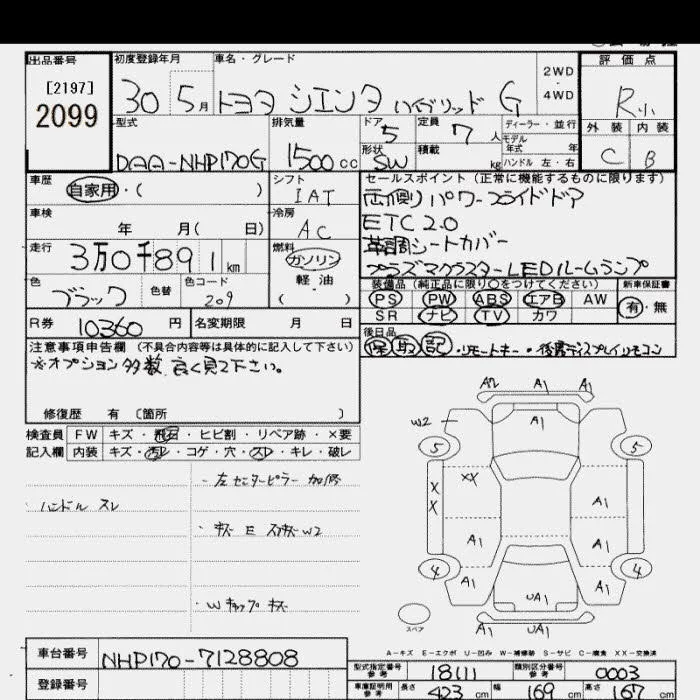 出品番号
[2197]
2099
初度登録年月
30 5月
車名・グレード
トヨタ シエンタ ハイブリッド G
2WD
・
4WD
評価点
R小
外装 内装
C B
型式
DAA-NHP170G
排気量
1500cc
ドア
5
形状
SW
定員
7人
積載
kg
ディーラー・並行
モデル年式 年
ハンドル 左・右
車歴
自家用・( )
シフト
IAT
車検
年 月( 日)
冷房
AC
走行
3万0千891km
燃料
ガソリン
軽油
( )
色
ブラック
色替
色コード
209
R券
10360円
名変期限 月 日
セールスポイント(正常に機能するものに限ります)
両側パワースライドドア
ETC2.0
革調シートカバー
プラズマクラスターLEDルームランプ
装備品(純正品に限り○をつけてください)
PS PW ABS エアB AW
SR ナビ TV カワ
新車保証書
有・無
後日品
保 取 記・リモートキー・後席ディスプレイリモコン
注意事項申告欄(不具合内容等は具体的に記入して下さい)
※オプション多数、良く見て下さい。
修復歴 有 〔箇所 〕
検査員
記入欄
FW キズ・飛石・ヒビ割・リペア跡・×要
内装 キズ・汚レ・コゲ・穴・スレ・キレ・破レ
・左センターピラー 加修
ハンドル スレ
・Wキャップ キズ
A2 A1 A1
W2
A1
5 5
X
X
XX
A1
A1 A1
4 4
A1 A1
UA1
A1 UA1
スペア
A-キズ E-エクボ U-凹み W-補修跡 S-サビ C-腐食 XX-交換済
車台番号
NHP170-7128808
登録番号
型式指定番号
参考
18111
類別区分番号
参考
0003
車庫証明用
参考
長さ 423cm 幅 169cm 高さ 167cm